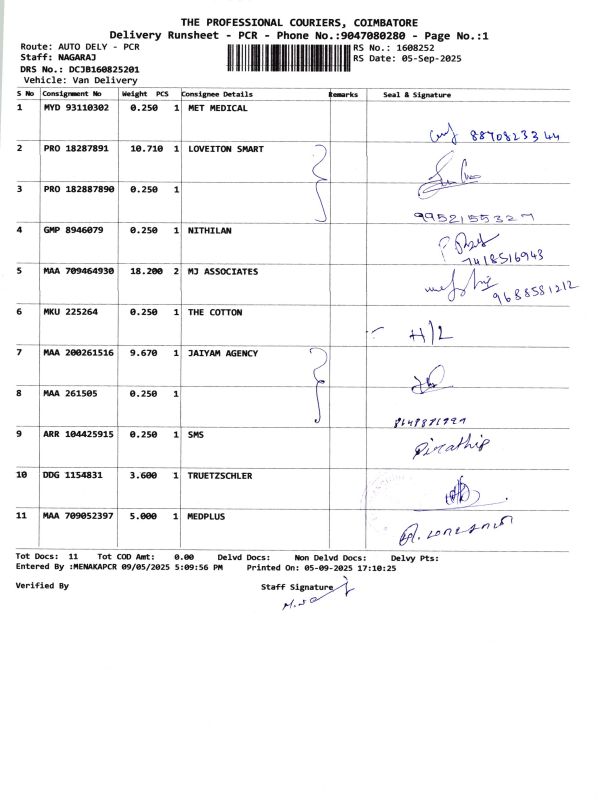 THE PROFESSIONAL COURIERS, COIMBATORE
Delivery Runsheet - PCR - Phone No.:9047080280 - Page No.:1
Route: AUTO DELY - PCR RS No.: 1608252
Staff: NAGARAJ RS Date: 05-Sep-2025
DRS No.: DCJB160825201
Vehicle: Van Delivery
S No Consignment No Weight PCS Consignee Details Remarks Seal & Signature
1 MYD 93110302 0.250 1 MET MEDICAL
8870823344
2 PRO 18287891 10.710 1 LOVEITON SMART
3 PRO 182887890 0.250 1
9952155327
4 GMP 8946079 0.250 1 NITHILAN
7418516943
5 MAA 709464930 18.200 2 MJ ASSOCIATES
9688581212
6 MKU 225264 0.250 1 THE COTTON
H/L
7 MAA 200261516 9.670 1 JAIYAM AGENCY
8 MAA 261505 0.250 1
9 ARR 104425915 0.250 1 SMS
10 DDG 1154831 3.600 1 TRUETZSCHLER
11 MAA 709052397 5.000 1 MEDPLUS
Tot Docs: 11 Tot COD Amt: 0.00 Delvd Docs: Non Delvd Docs: Delvy Pts:
Entered By :MENAKAPCR 09/05/2025 5:09:56 PM Printed On: 05-09-2025 17:10:25
Verified By Staff Signature